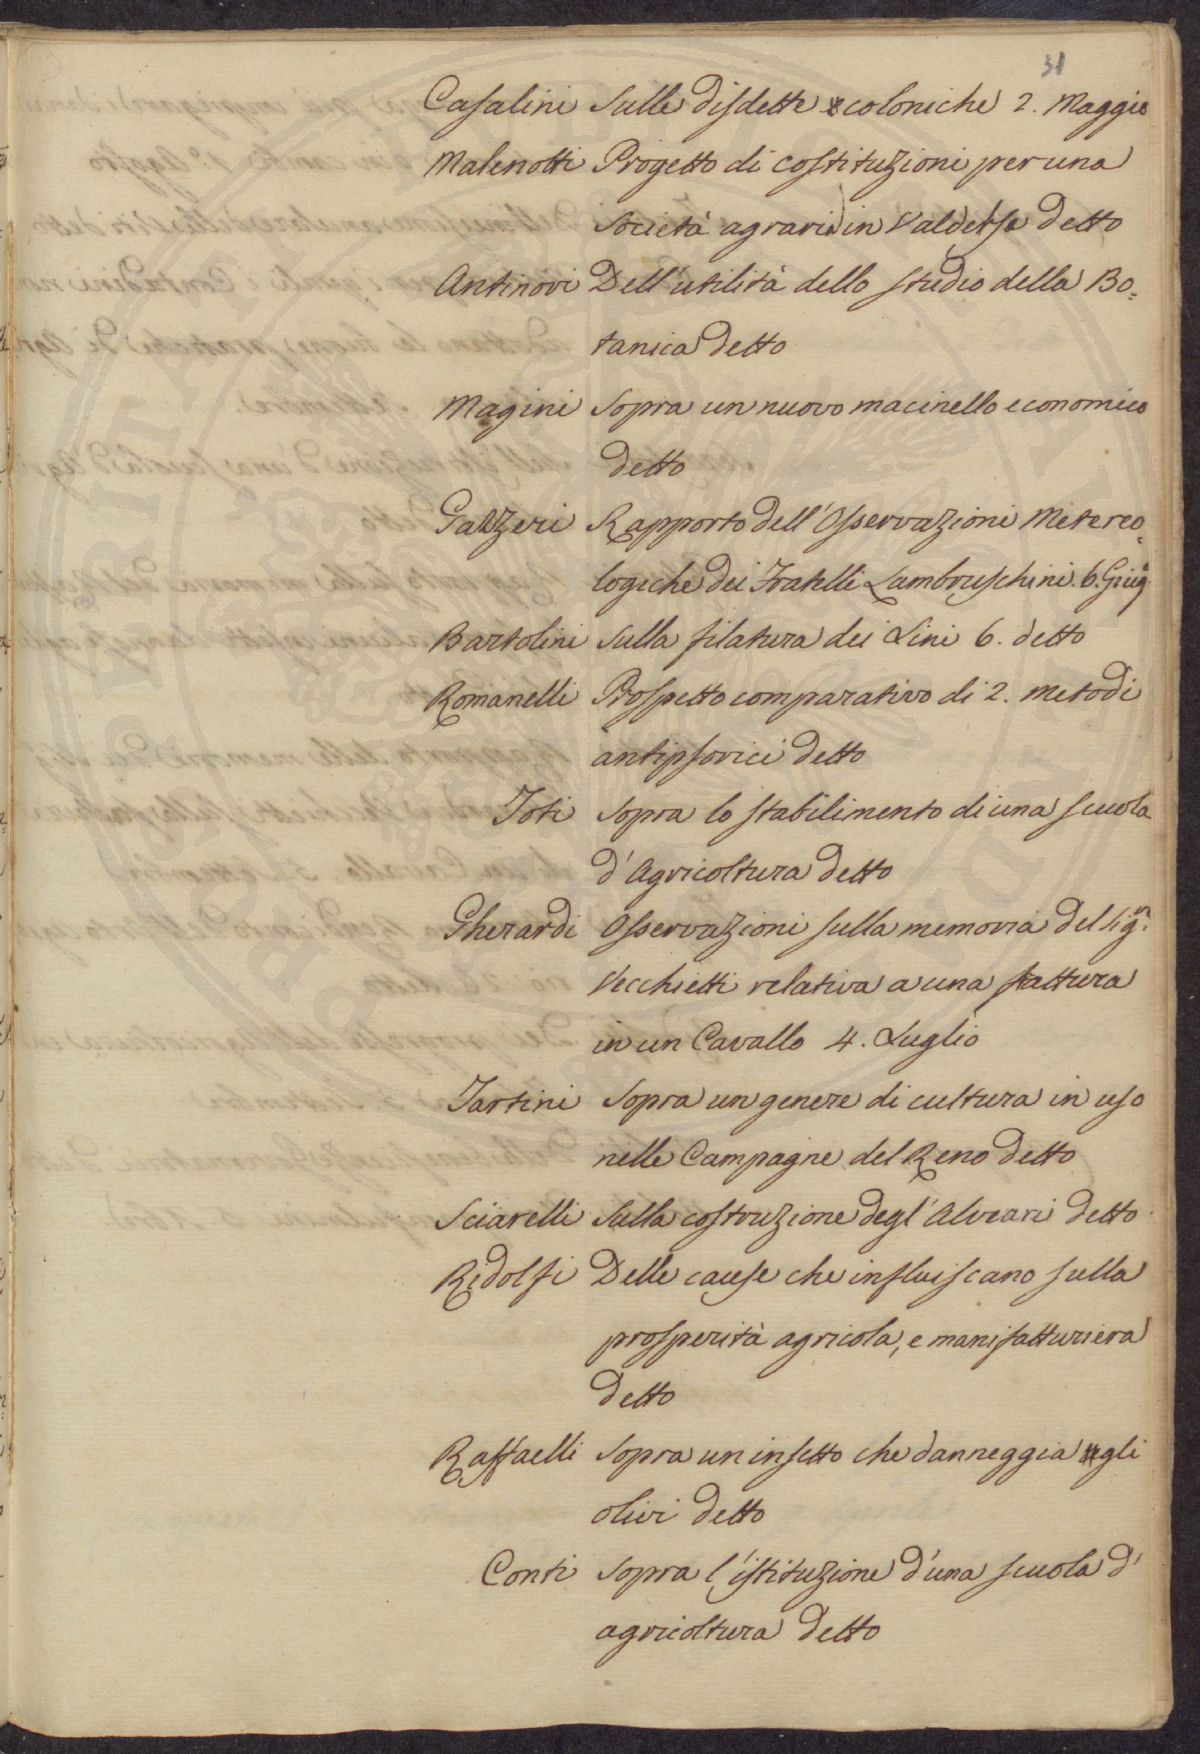 31
Casalini Sulle disdette coloniche 2. Maggio
Malenotti Progetto di costituzioni per una
Società agraria in Valdelsa detto
Antinori Dell'utilità dello studio della Bo=
tanica detto
Magini Sopra un nuovo macinello economico
detto
Gazzeri Rapporto dell'Osservazioni Metereo=
logiche dei Fratelli Lambruschini. 6. Giug.º
Bartolini Sulla filatura dei Lini 6. detto
Romanelli Prospetto comparativo di 2. metodi
antipsorici detto
Toti Sopra lo stabilimento di una scuola
d'Agricoltura detto
Gherardi Osservazioni sulla memoria del Sigʳ.
Vecchietti relativa a una frattura
in un Cavallo 4. Luglio
Tartini Sopra un genere di cultura in uso
nelle Campagne del Reno detto
Sciarelli Sulla costruzione degl'Alveari detto
Ridolfi Delle cause che influiscano sulla
prosperità agricola, e manifatturiera
detto
Raffaelli Sopra un insetto che danneggia gli
olivi detto
Conti Sopra l'istituzione d'una scuola d'
agricoltura detto